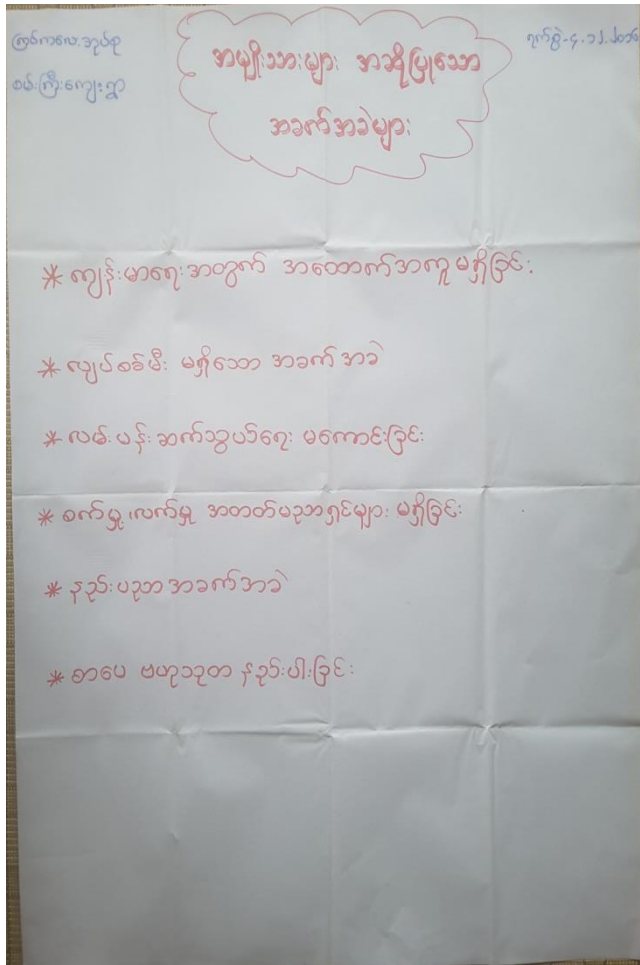 ကြပ်ကလေးအုပ်စု
စမ်းကြီးကျေးရွာ
ရက်စွဲ-၄.၁၂.၂၀၁၆
အမျိုးသားများ အဆိုပြုသော
အခက်အခဲများ
* ကျန်းမာရေးအတွက် အထောက်အကူမရှိခြင်း
* လျှပ်စစ်မီး မရှိသော အခက်အခဲ
* လမ်းပန်းဆက်သွယ်ရေး မကောင်းခြင်း
* စက်မှု့၊လက်မှု အတတ်ပညာရှင်များ မရှိခြင်း
* နည်းပညာအခက်အခဲ
* စာပေ ဗဟုသုတ နည်းပါးခြင်း